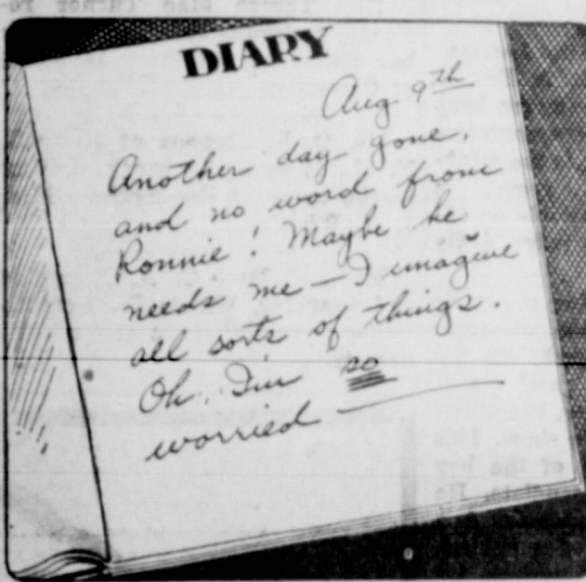 DIARY
Aug 9th
Another day gone,
and no word from
Ronnie! Maybe he
needs me — I imagine
all sorts of things.
Oh, I'm so
worried —